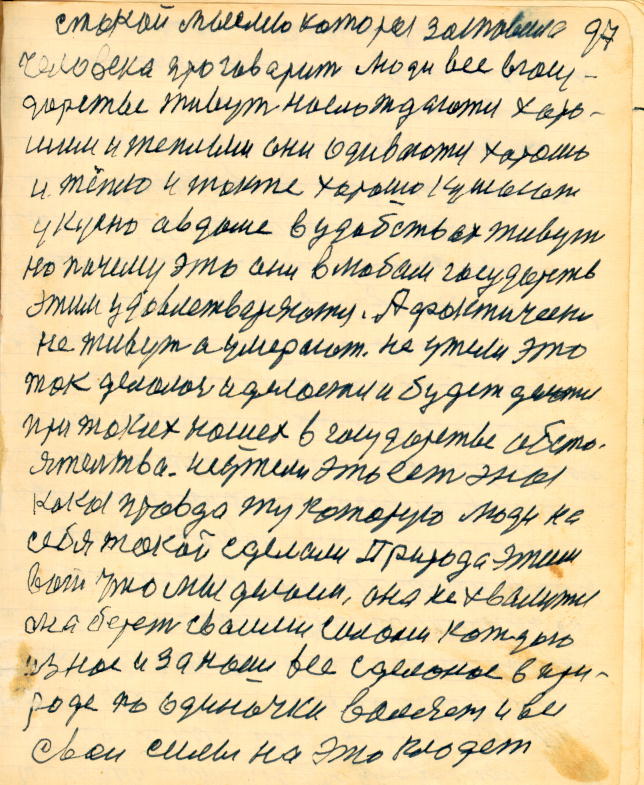 стокой мыслю которая заставила 97
человека проговарит люди все вгосу-
дарстве живут наслождаютя харо-
шим и теплым они одиваютя харошо
и тёпло и также харошо кушоют
укусно авдоме вудобствах живут
но почему это они влюбом государств
этим удовлетваряютя. А фоктически
не живут а умерают. не ужели это
ток делолос иделоетя и будет делотя
при токих нашех в государстве обсто-
ятелства. неужели это ест эта
кака правда ту которую люди на
себя токой сделали Природа этим
вот что мы делоем, она не хвалитя
она берет своими силоми каждого
изнас и заноми все сделоное впри-
роде по одиночки воляет и все
свои силы на это кладет